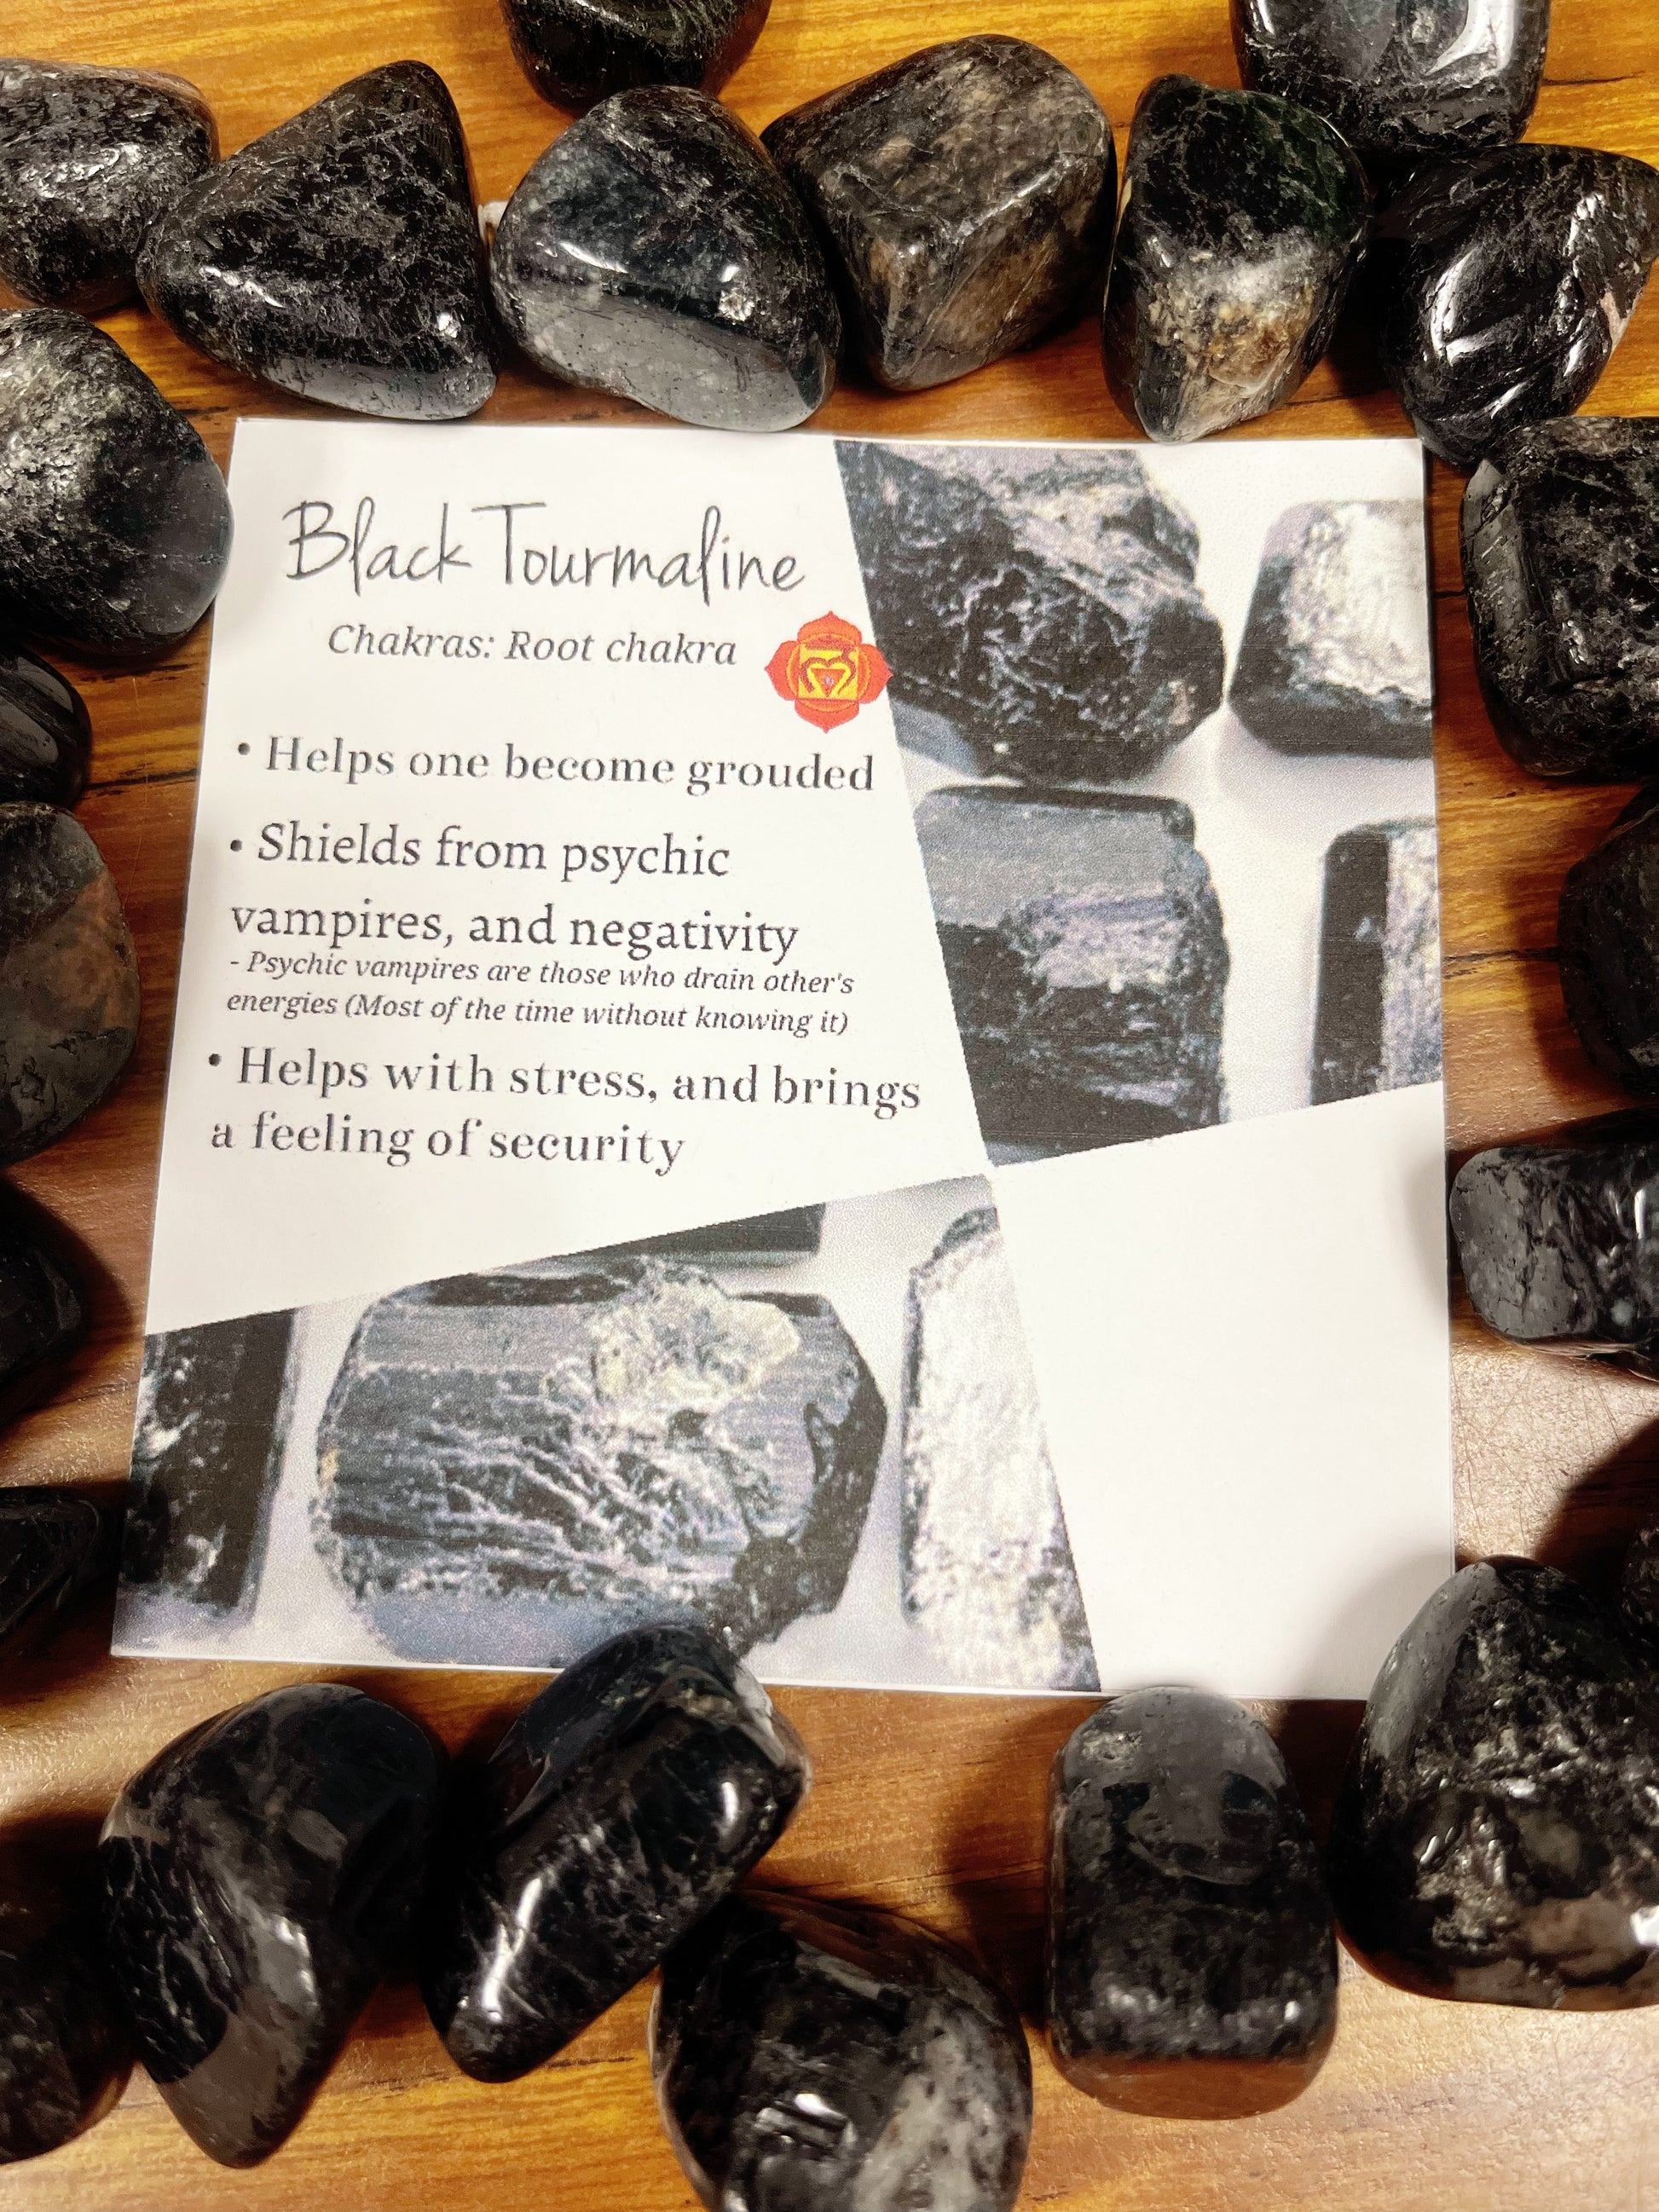 Black Tourmaline
Chakras: Root chakra
• Helps one become grouded
• Shields from psychic
vampires, and negativity
- Psychic vampires are those who drain other's
energies (Most of the time without knowing it)
• Helps with stress, and brings
a feeling of security